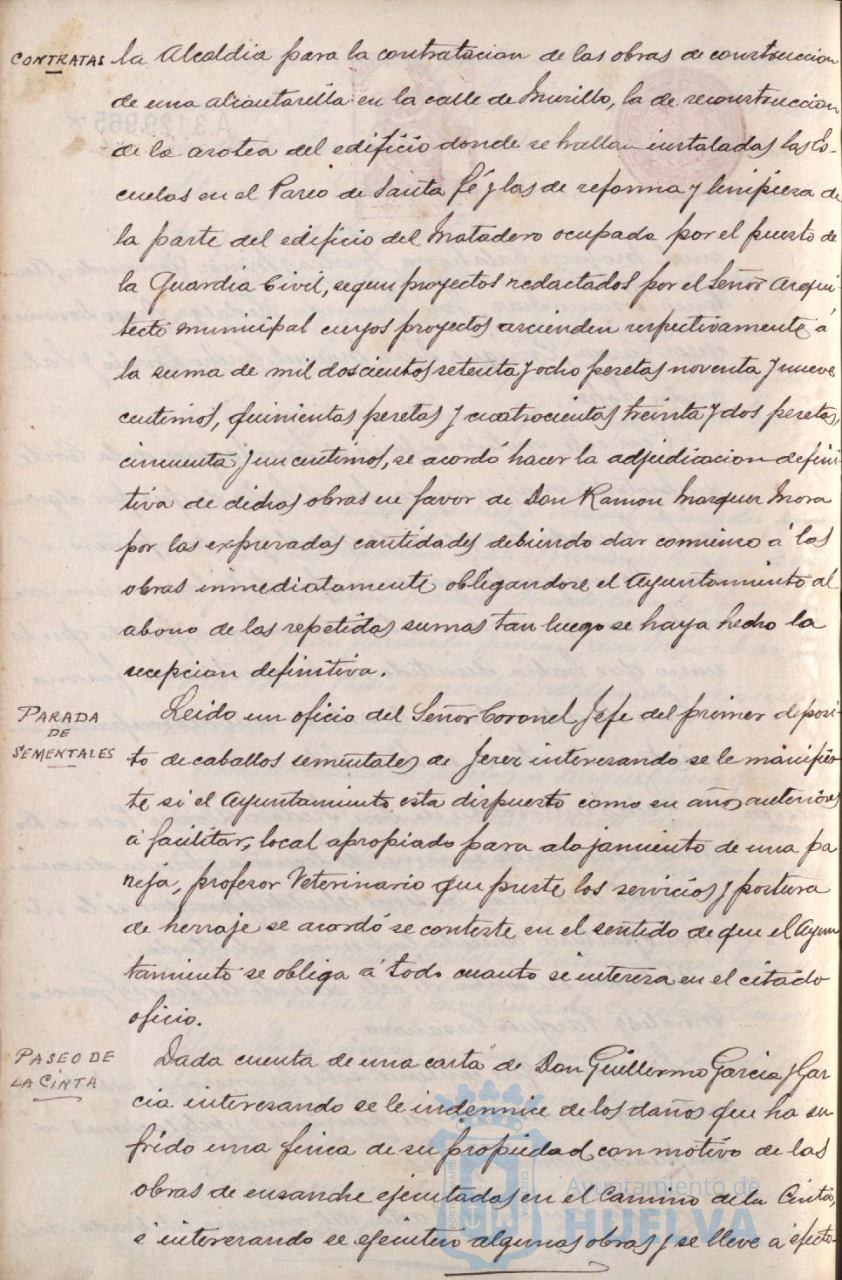 CONTRATAS
la Alcaldia para la contratacion de las obras de construccion
de una alcantarilla en la calle de Murillo, la de reconstruccion
de la azotea del edificio donde se hallan instaladas las Es-
cuelas en el Paseo de Santa Fé y las de reforma y limpieza de
la parte del edificio del Matadero ocupada por el puesto de
la Guardia Civil, segun proyectos redactados por el Señor Arqui-
tecto municipal cuyos proyectos ascienden respectivamente á
la suma de mil doscientos setenta y ocho pesetas noventa y nueve
centimos, quinientas pesetas y cuatrocientas treinta y dos pesetas,
cincuenta y un centimos, se acordó hacer la adjudicacion defini-
tiva de dichas obras en favor de Don Ramon Marquez Mora
por las expresadas cantidades debiendo dar comienzo á las
obras inmediatamente obligandose el Ayuntamiento al
abono de las repetidas sumas tan luego se haya hecho la
recepcion definitiva.
PARADA
DE
SEMENTALES
Leido un oficio del Señor Coronel Jefe del primer deposi-
to de caballos sementales de Jerez interesando se le manifies-
te si el Ayuntamiento esta dispuesto como en años anteriores
á facilitar, local apropiado para alojamiento de una pa
reja, profesor Veterinario que preste los servicios y postura
de herraje se acordó se conteste en el sentido de que el Ayun
tamiento se obliga á todo cuanto se interesa en el citado
oficio.
PASEO DE
LA CINTA
Dada cuenta de una carta de Don Guillermo Garcia y Gar
cia interesando se le indemnice de los daños que ha su
frido una finca de su propiedad con motivo de las
obras de ensanche ejecutadas en el Camino de la Cinta,
é interesando se ejecuten algunas obras y se lleve á efecto
Ayuntamiento de
HUELVA